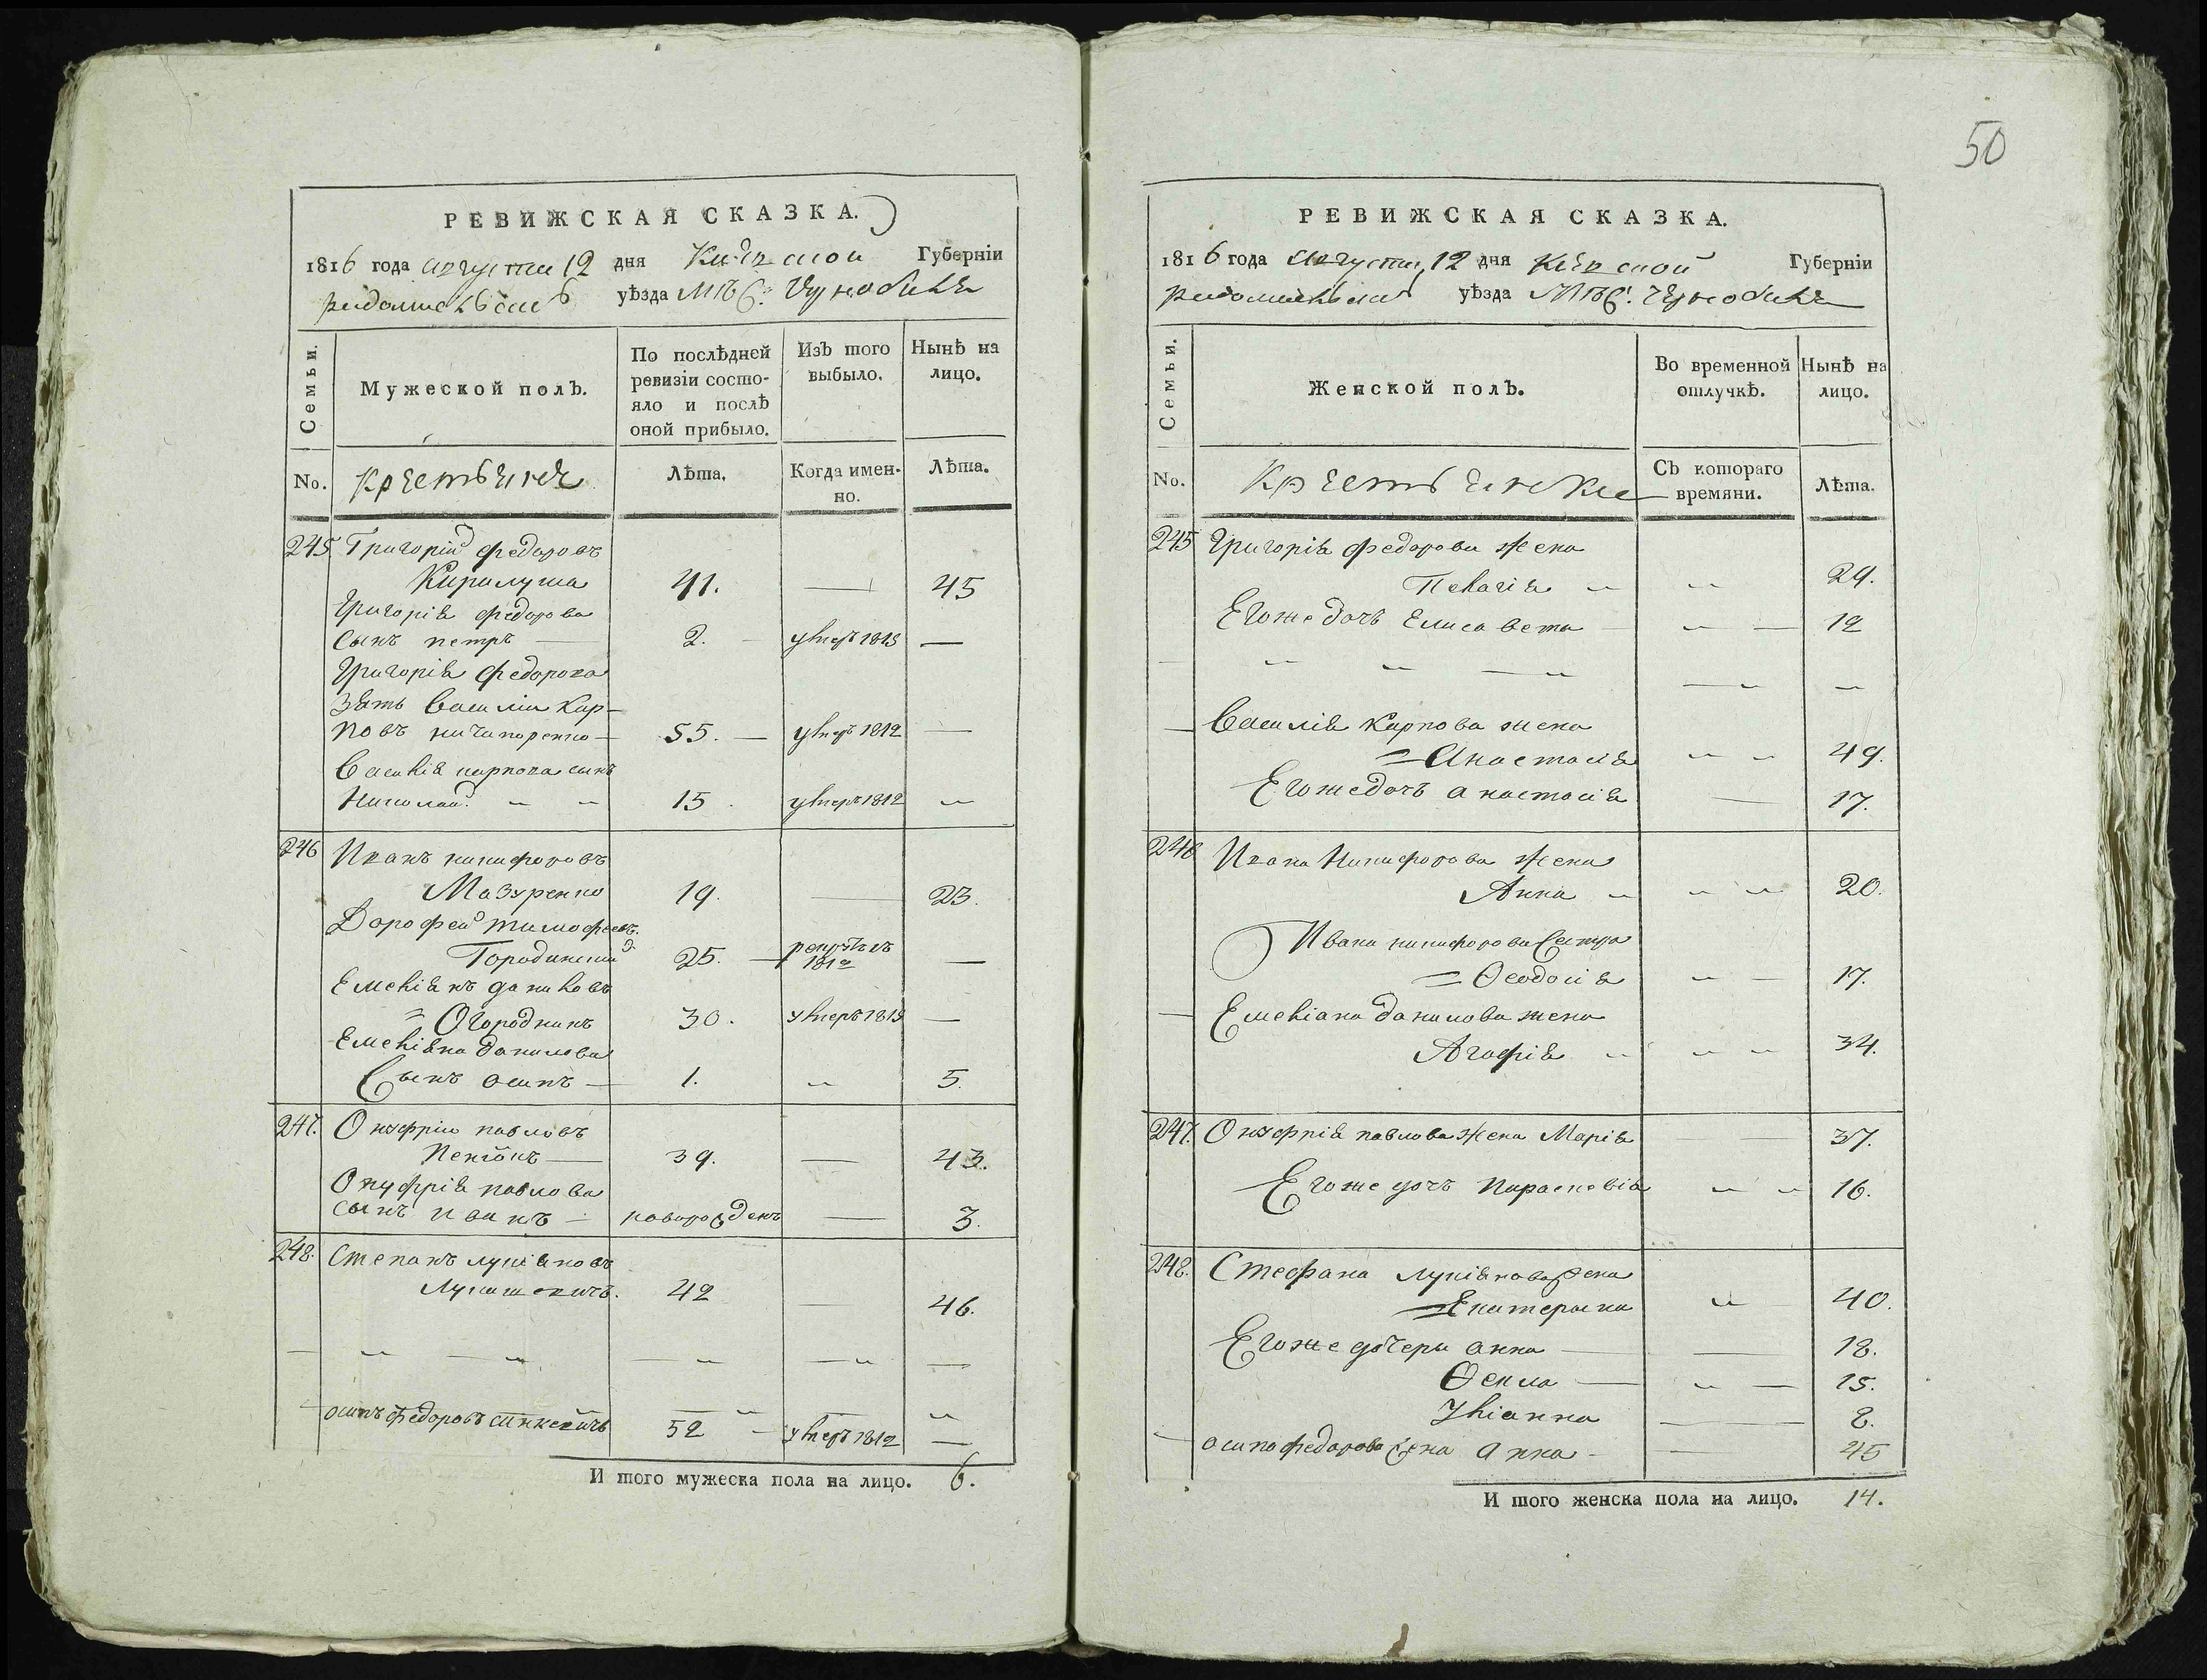 РЕВИЖСКАЯ СКАЗКА.
1816 года августа 12 дня Киевской Губерніи
радомысльскаго уѣзда Мѣс: Чернобиля
Семьи.
Мужеской полъ.
По послѣдней ревизіи состояло и послѣ оной прибыло.
Изъ того выбыло.
Нынѣ на лицо.
No.
Крестьяне
Лѣта.
Когда имен-
но.
Лѣта.
245 Григорій федоровъ
Кирилуша 41. — 45
Григорія федорова
сынъ петръ — 2. — умеръ 1813 —
Григорія федорова
зять Василій Кар-
повъ ничипоренко — 55. — умеръ 1812 —
Василія карпова сынъ
Николай 15. умеръ 1812
246 Иванъ никифоровъ
Мазуренко 19. — 23.
Дорофей тимофеевъ.
Городинский 25. — рекрутъ въ 1812 —
Емелiянъ даниловъ
Огородникъ 30. умеръ 1813 —
Емелiяна данилова
Сынъ осипъ — 1. 5.
247. Онуфрій павловъ
39. — 43.
Онуфрія павлова
сынъ иванъ — новорожденъ — 3.
248. Степанъ лукіяновъ
Лукашевичъ. 42 — 46.
осипъ федоровъ синкевичь 52 — умеръ 1812 —
И того мужеска пола на лицо. 6.
50
РЕВИЖСКАЯ СКАЗКА.
1816 года августа 12 дня Киевской Губерніи
радомысльскаго уѣзда Мѣс: Чернобиля
Семьи.
Женской полъ.
Во временной отлучкѣ.
Нынѣ на лицо.
No.
Крестьянки
Съ котораго
времяни.
Лѣта.
245 Григорія федорова жена
Пелагія 29.
Егоже дочь Елисавета — 12
Василія Карпова жена
Анастасія 49.
Егоже дочь анастасія — 17.
246 Ивана Никифорова жена
Анна 20.
Ивана никифорова Сестра
Ѳеодосія 17.
Емеліана данилова жена
Агафія 34.
247. Онуфрія павлова жена Марія — 37.
Егоже дочь Параскевія 16.
248. Стефана лукіянова жена
Екатерина 40.
Егоже дочери анна — 18.
Ѳекла — 15.
Уліанна — 8.
осипа федорова жена анна — 45
И того женска пола на лицо. 14.